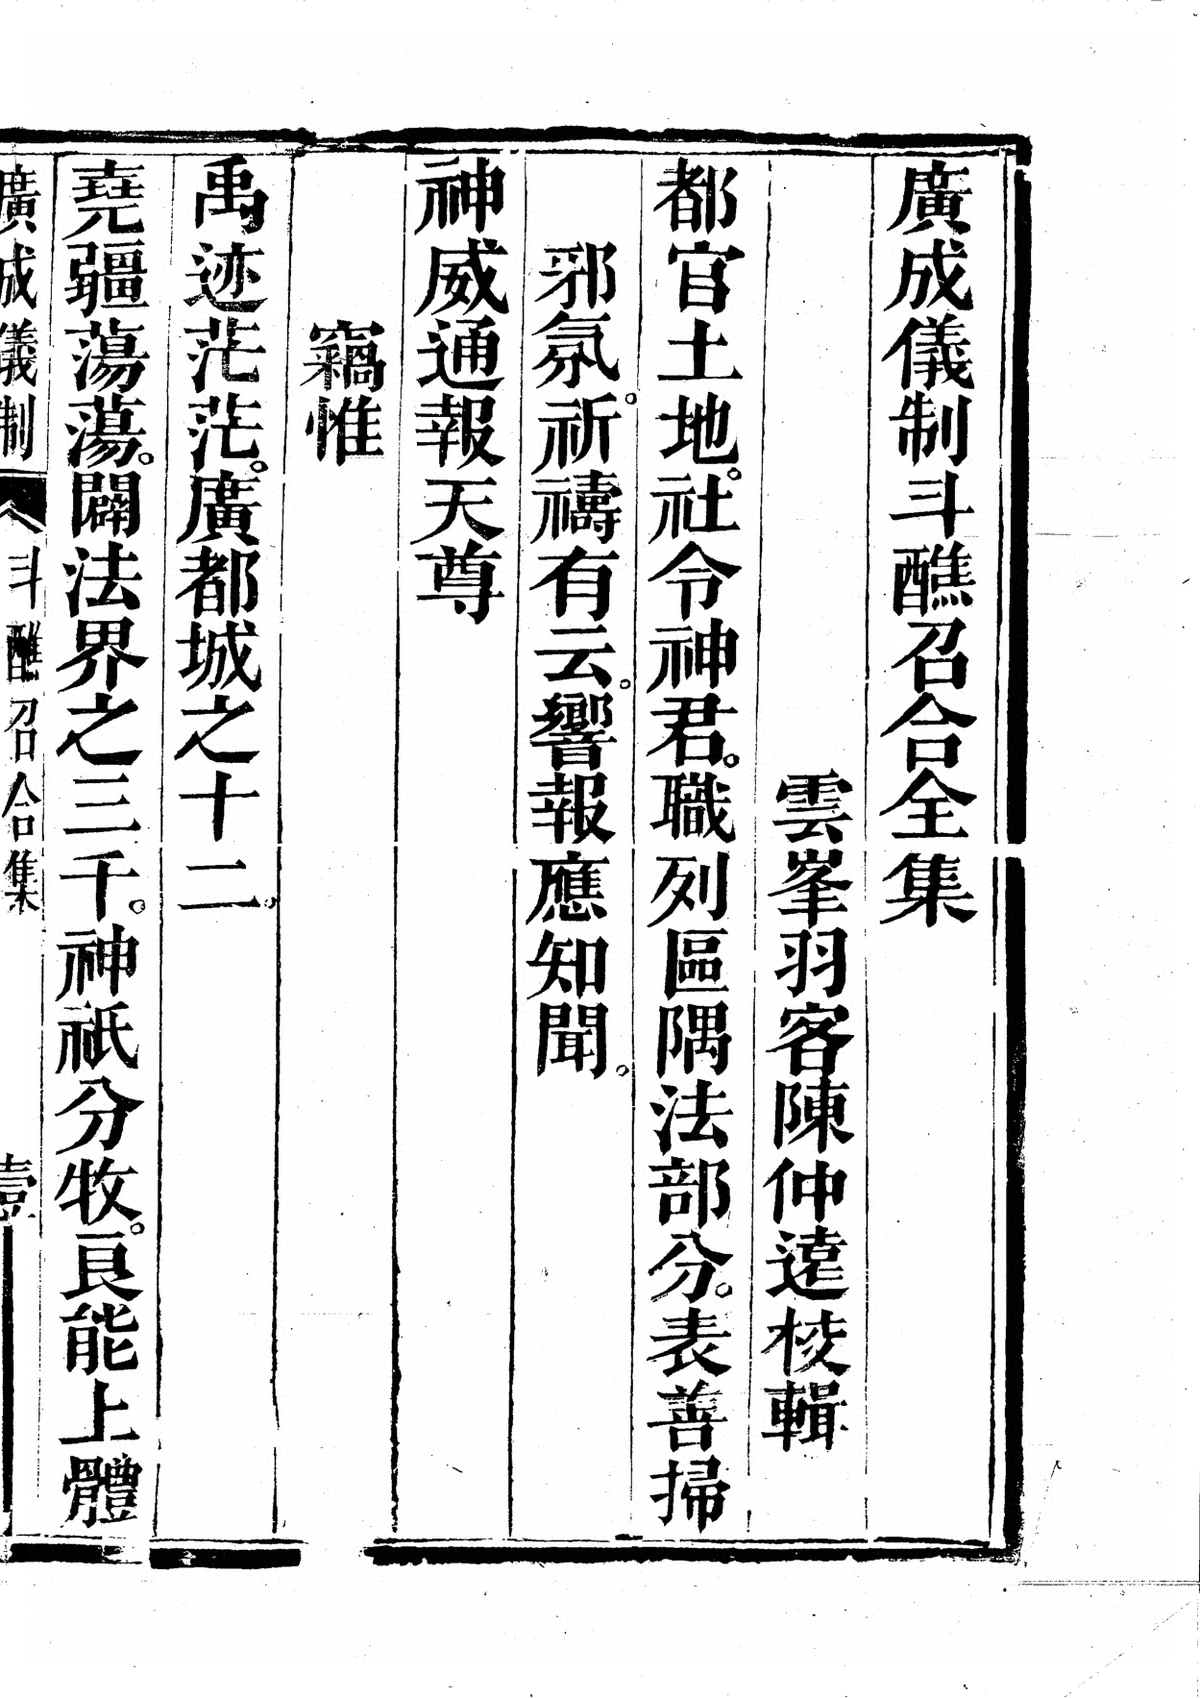 廣成儀制斗醮召合全集
雲峯羽客陳仲遠校輯
都官土地。社令神君。職列區隅法部分。表善掃
邪氛。祈禱有云。響報應知聞。
神威通報天尊
竊惟
禹迹茫茫。廣都城之十二。
堯疆蕩蕩。闢法界之三千。神祇分牧。良能上體
廣成儀制 斗醮召合集 壹